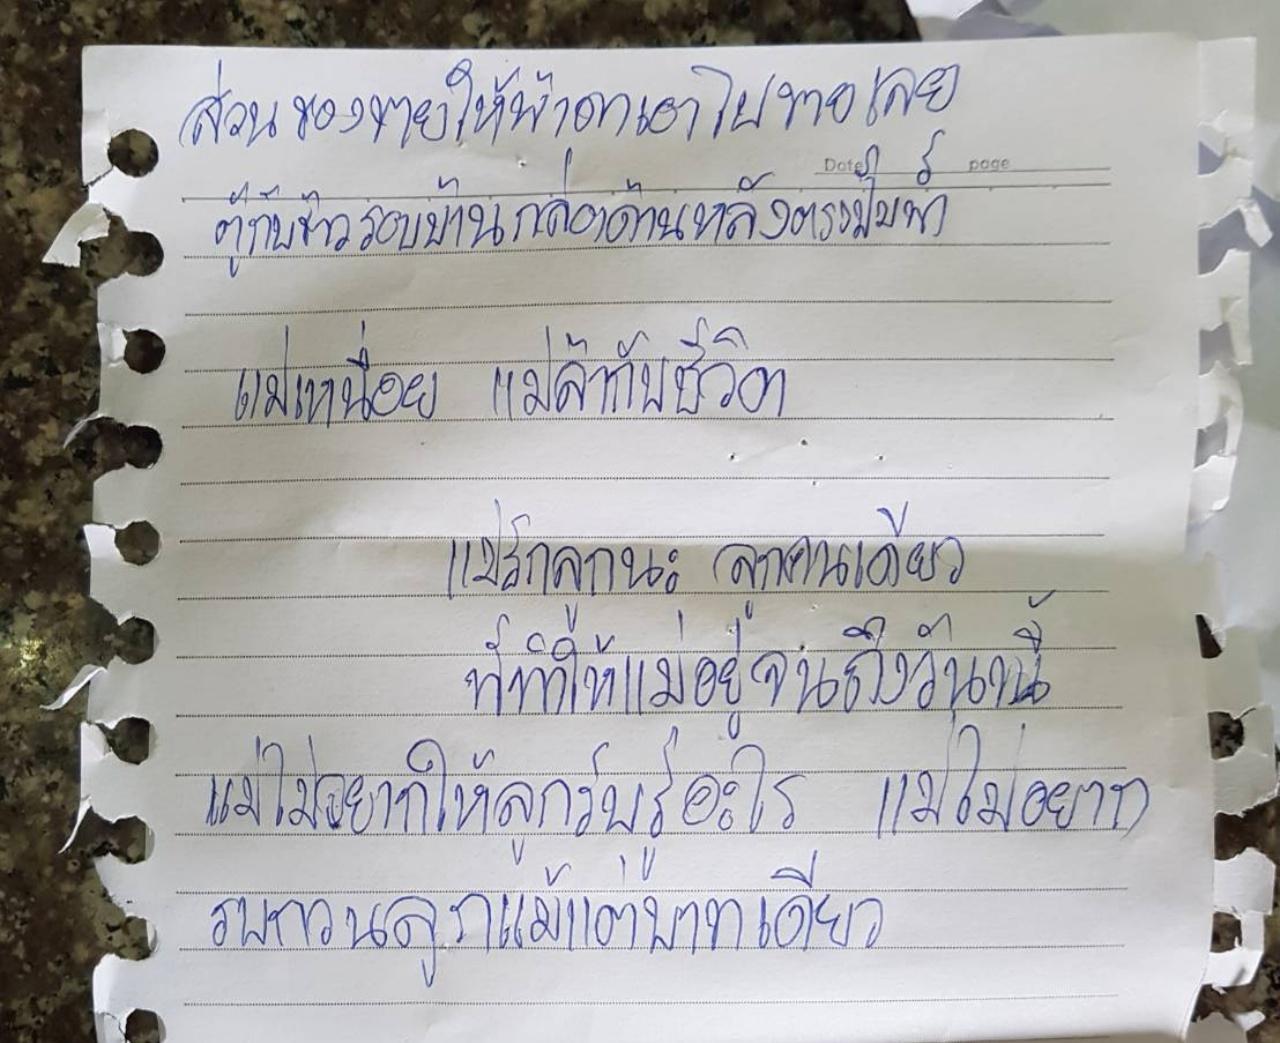 ส่วนของขายให้ฟ้าดาเอาไปขายเลย
Date page
ตู้กับข้าวรอบบ้านกล่องด้านหลังตรงปั๊มพ์
แม่เหนื่อย แม่ล้ากับชีวิต
แม่รักลูกนะ ลูกคนเดียว
ที่ทำให้แม่อยู่จนถึงวันนี้
แม่ไม่อยากให้ลูกรับรู้อะไร แม่ไม่อยาก
รบกวนลูกแม้แต่บาทเดียว